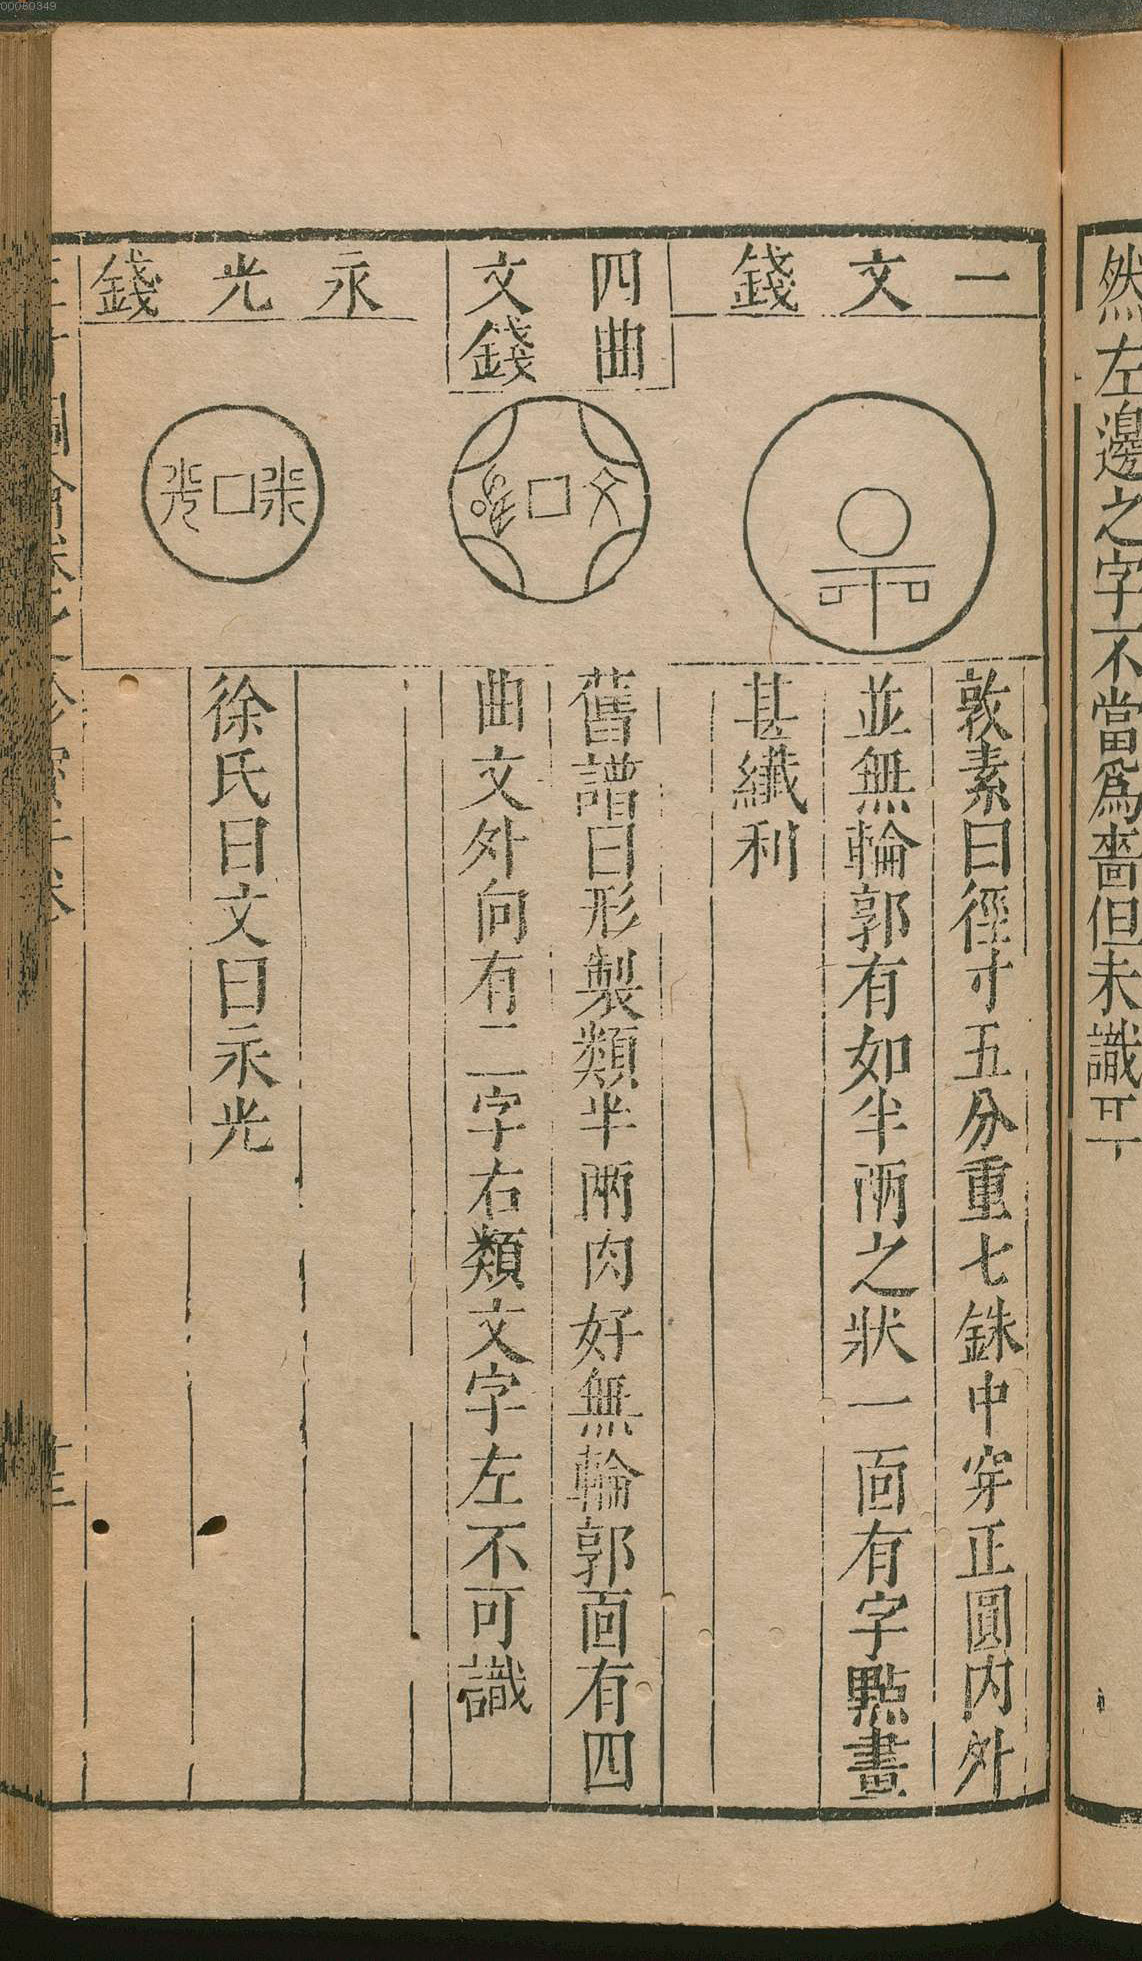 00060349
然左邊之字不當爲嗇但未識
一文錢
敦素曰徑寸五分重七銖中穿正圓内外
並無輪郭有如半兩之狀一面有字點畫
甚纖利
四曲
文錢
舊譜曰形製類半兩肉好無輪郭面有四
曲文外向有二字右類文字左不可識
永光錢
徐氏曰文曰永光